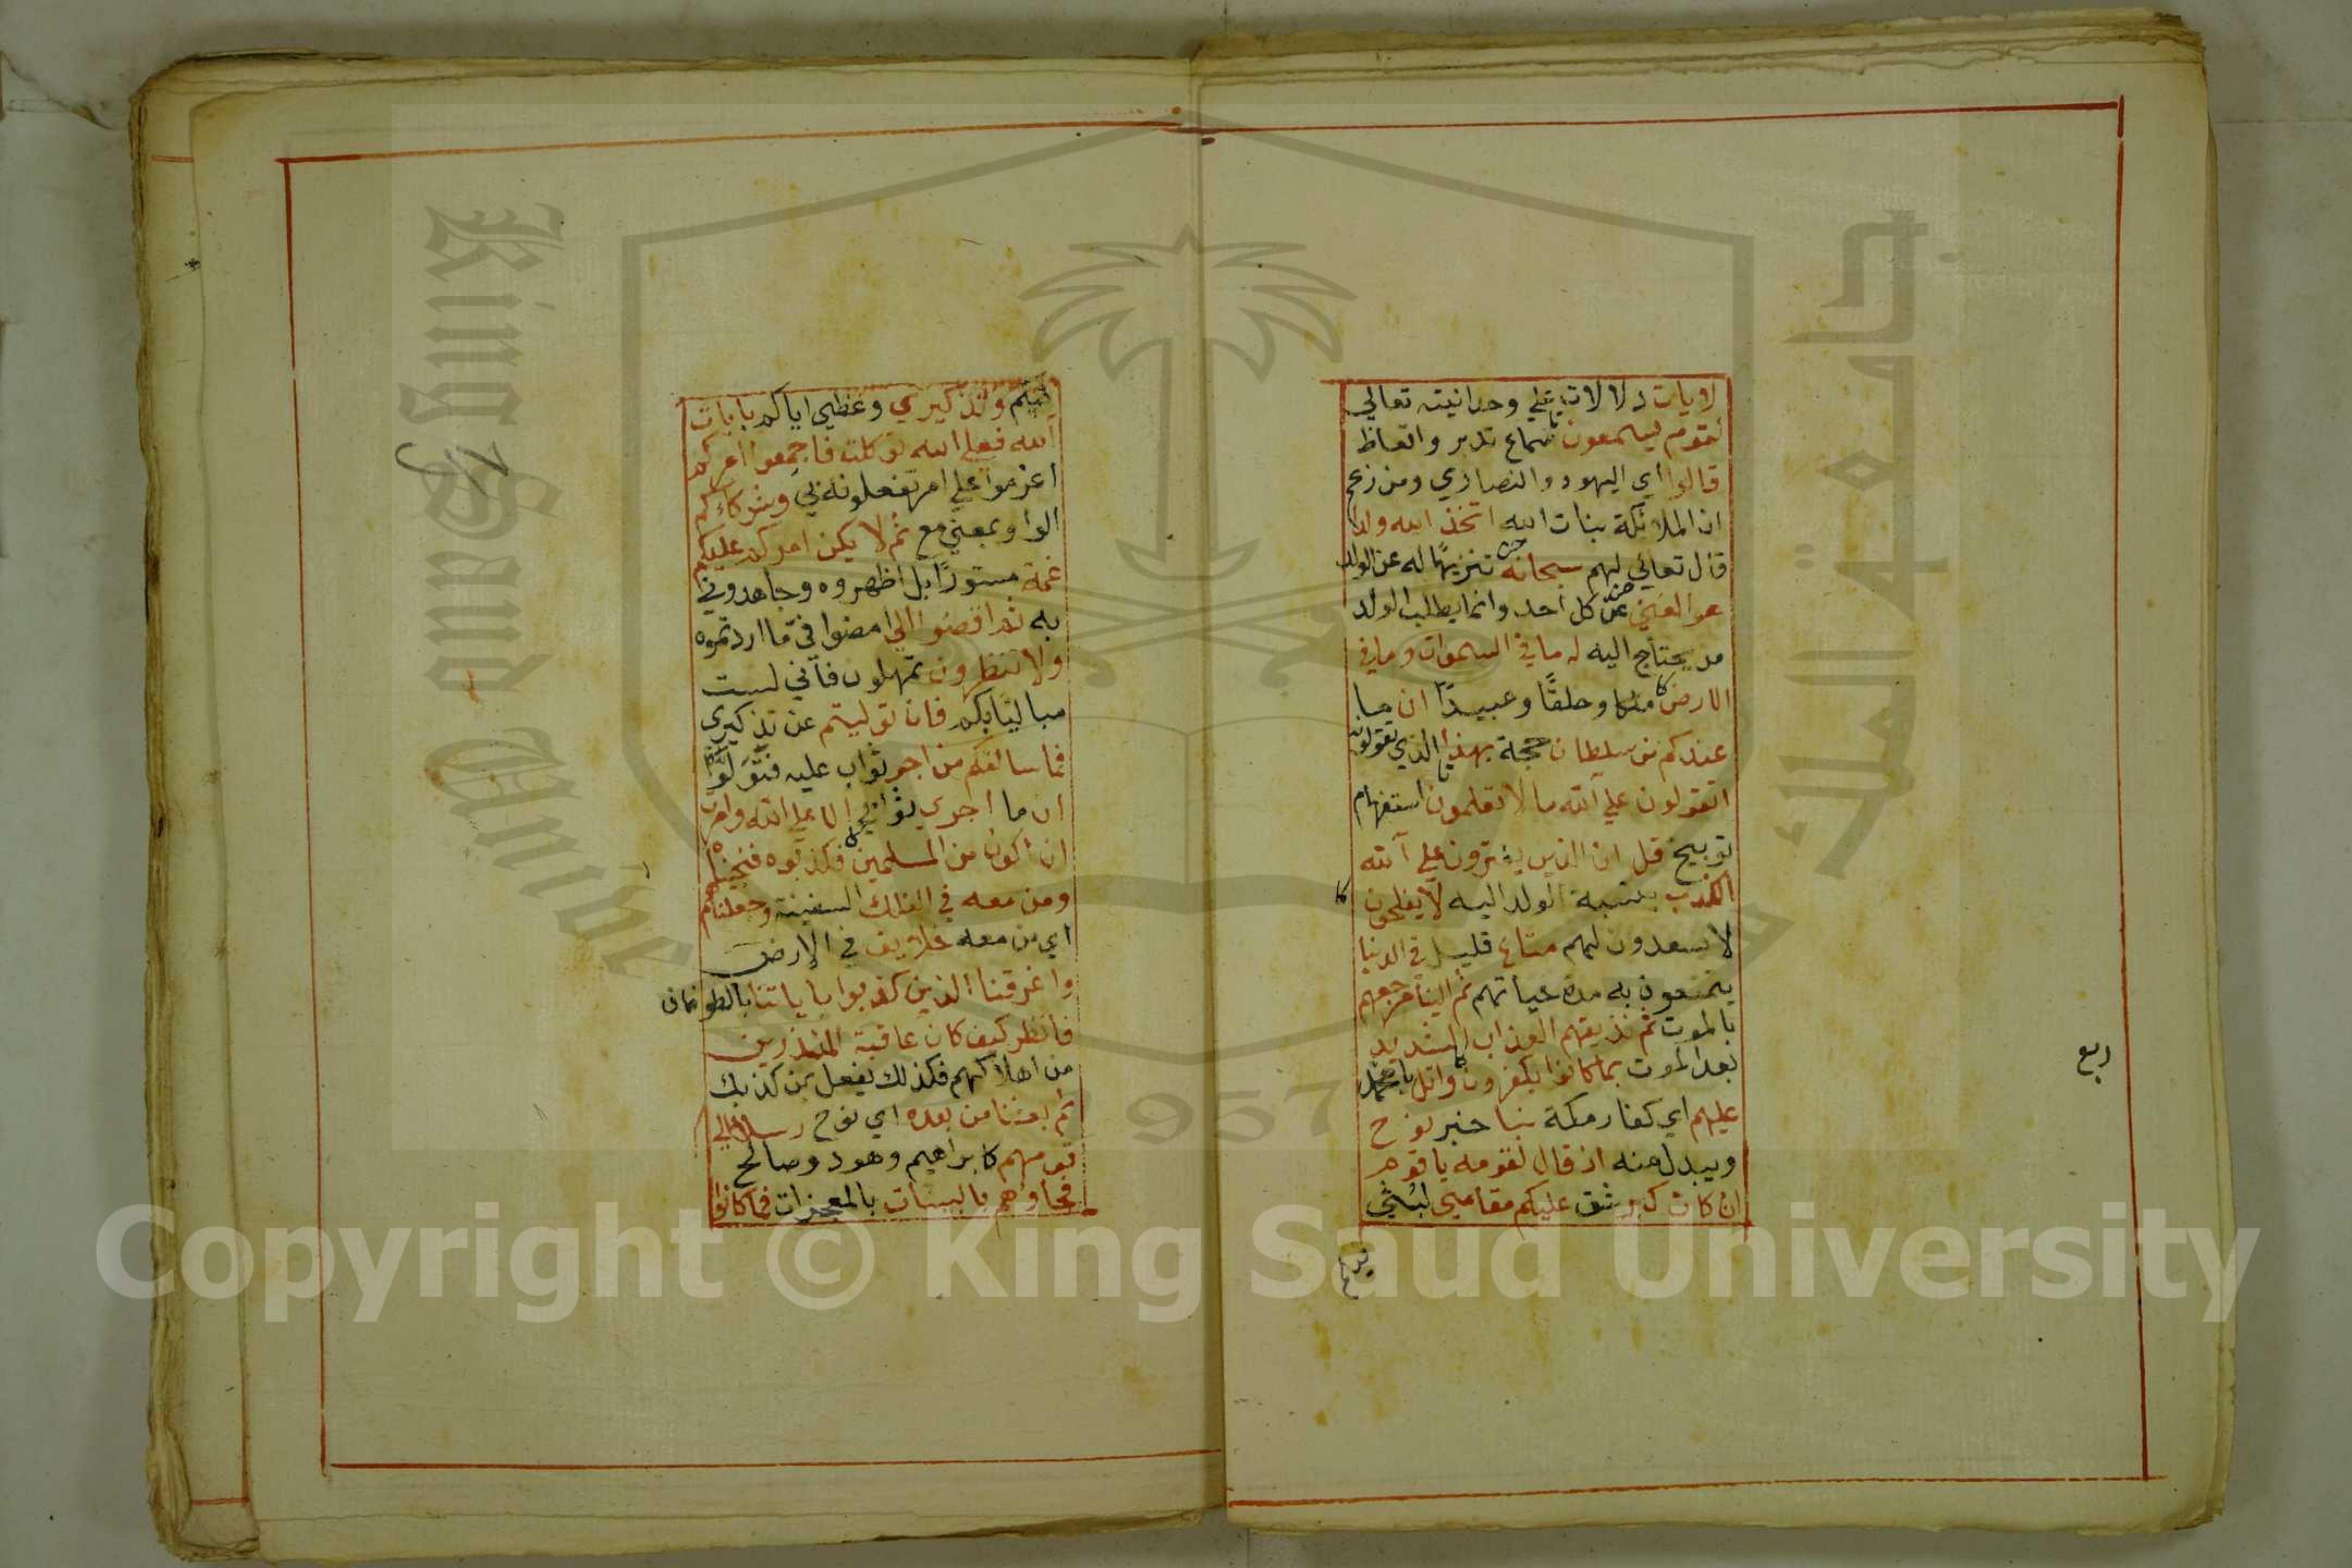 لايات دلالات علي وحدانيته تعالي
لقوم يسمعون سماع تدبر واتعاظ
قالوا اي اليهود والنصاري ومن زعم
ان الملائكة بنات الله اتخذ الله ولدا
قال تعالي لهم سبحانه تنزيها له عن الولد
هو الغني عن كل احد وانما يطلب الولد
من يحتاج اليه له ما في السموات وما في
الارض ملكا وخلقا وعبيدا ان ما
عندكم من سلطان حجة بهذا الذي تقولون
اتقولون علي الله ما لا تعلمون استفهام
توبيخ قل ان الذين يفترون علي الله
الكذب بنسبة الولد اليه لا يفلحون
لا يسعدون لهم متاع قليل في الدنيا
يتمتعون به مدة حياتهم ثم الينا مرجعهم
بالموت ثم نذيقهم العذاب الشديد
بعد الموت بما كانوا يكفرون واتل يا محمد
ربع
عليهم اي كفار مكة نبا خبر نوح
ويبدل منه اذ قال لقومه يا قوم
ان كان كبر شق عليكم مقامي لبثي
فيكم
فيكم وتذكيري وعظي اياكم بايات
الله فعلي الله توكلت فاجمعوا امركم
اعزموا علي امر تفعلونه بي وشركاءكم
الواو بمعني مع ثم لا يكن امركم عليكم
غمة مستورا بل اظهروه وجاهدوني
به ثم اقضوا الي امضوا في ما اردتموه
ولا تنظرون تمهلون فاني لست
مباليا بكم فان توليتم عن تذكيري
فما سالتكم من اجر ثواب عليه فتولوا
ان ما اجري ثوابي الا علي الله وامرت
ان اكون من المسلمين فكذبوه فنجيناه
ومن معه في الفلك السفينة وجعلناهم
اي من معه خلايف في الارض
واغرقنا الذين كذبوا باياتنا بالطوفان
فانظر كيف كان عاقبة المنذرين
من اهلاكهم فكذلك نفعل بمن كذبك
ثم بعثنا من بعده اي نوح رسلا الي
قومهم كابراهيم وهود وصالح
فجاوهم بالبينات بالمعجزات فما كانوا
جامعة الملك
King Saud Unive
957
Copyright © King Saud University